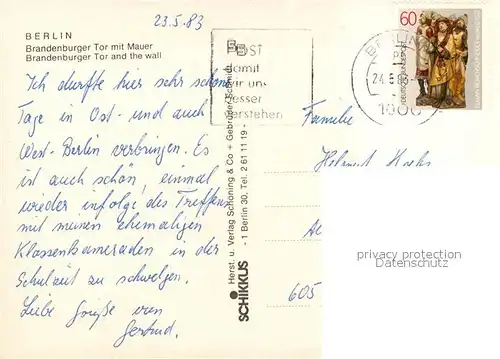 23.5.83
BERLIN
Brandenburger Tor mit Mauer
Brandenburger Tor and the wall
Ich durfte hier sehr schöne
Tage in Ost- und auch
West-Berlin verbringen. Es
ist auch schön einmal
wieder infolge des Treffens
mit meinen ehemaligen
Klassenkameraden in der
Schulzeit zu schwelgen.
Liebe Grüße von
Gertrud.
POST
damit
wir uns
besser
verstehen
BERLIN
24.5.83
1000
60
DEUTSCHE BUNDESPOST
Herst. u. Verlag Schöning & Co + Gebrüder Schmidt
- 1 Berlin 30, Tel. 2 61 11 19 -
SCHIKKUS
Familie
Helmut
605
privacy protection
Datenschutz